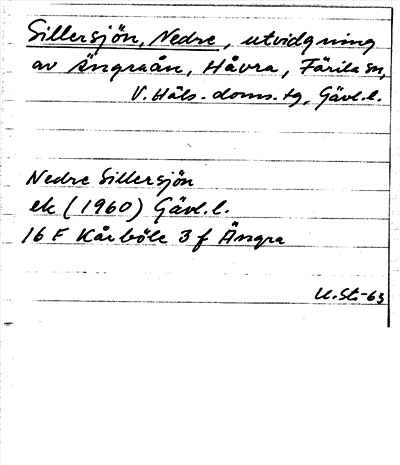 Sillersjön, Nedre, utvidgning
av Ängraån, Håvra, Färila sn,
V. Häls. doms. tg, Gävl.l.
Nedre Sillersjön
ek (1960) Gävl.l.
16 F Kårböle 3 f Ängra
U.St.-63